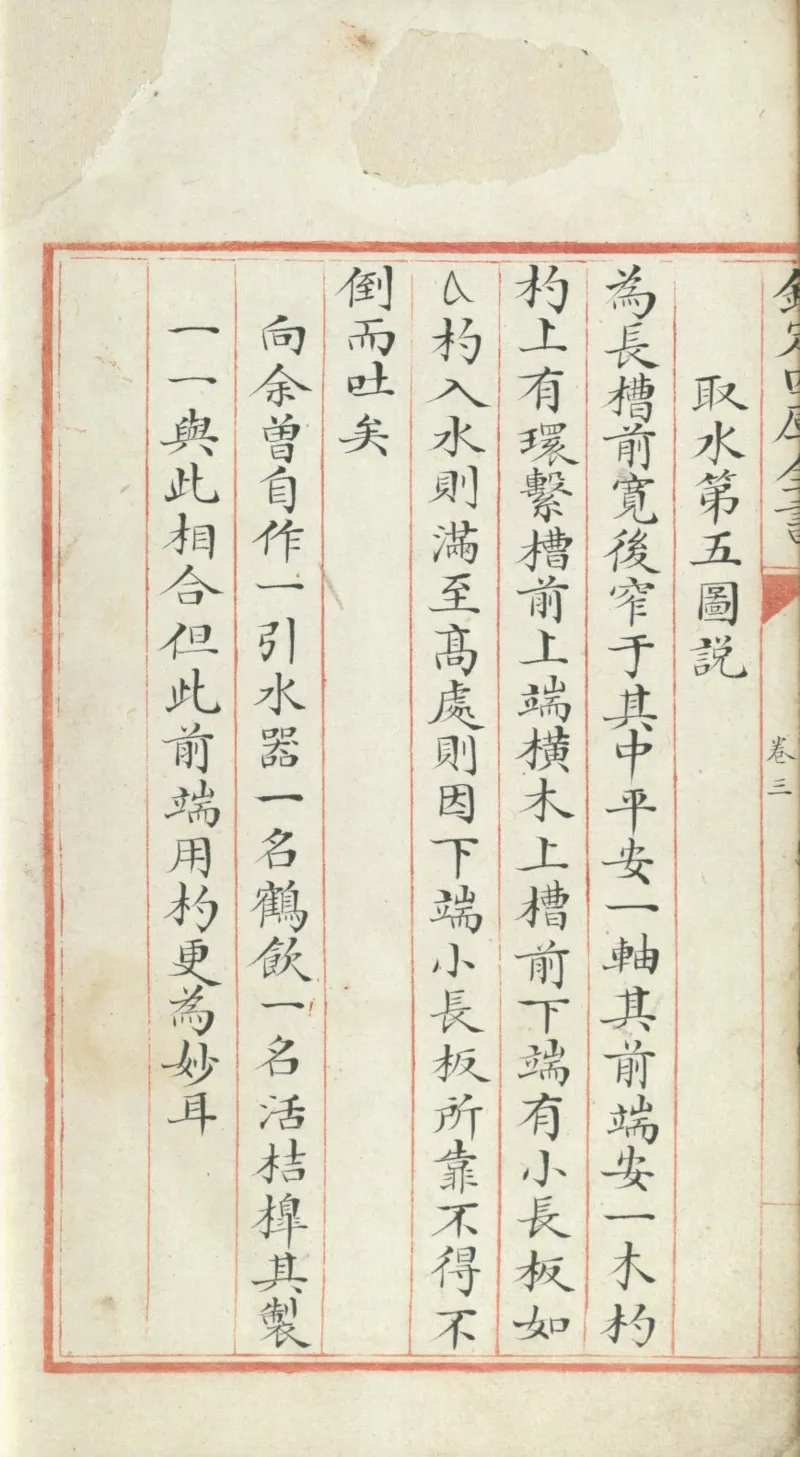 欽定四庫全書
卷三
取水第五圖説
為長槽前寛後窄于其中平安一軸其前端安一木杓
杓上有環繫槽前上端横木上槽前下端有小長板如
杓入水則滿至髙處則因下端小長板所靠不得不
倒而吐矣
向余曽自作一引水器一名鶴飲一名活桔槔其製
一一與此相合但此前端用杓更為妙耳